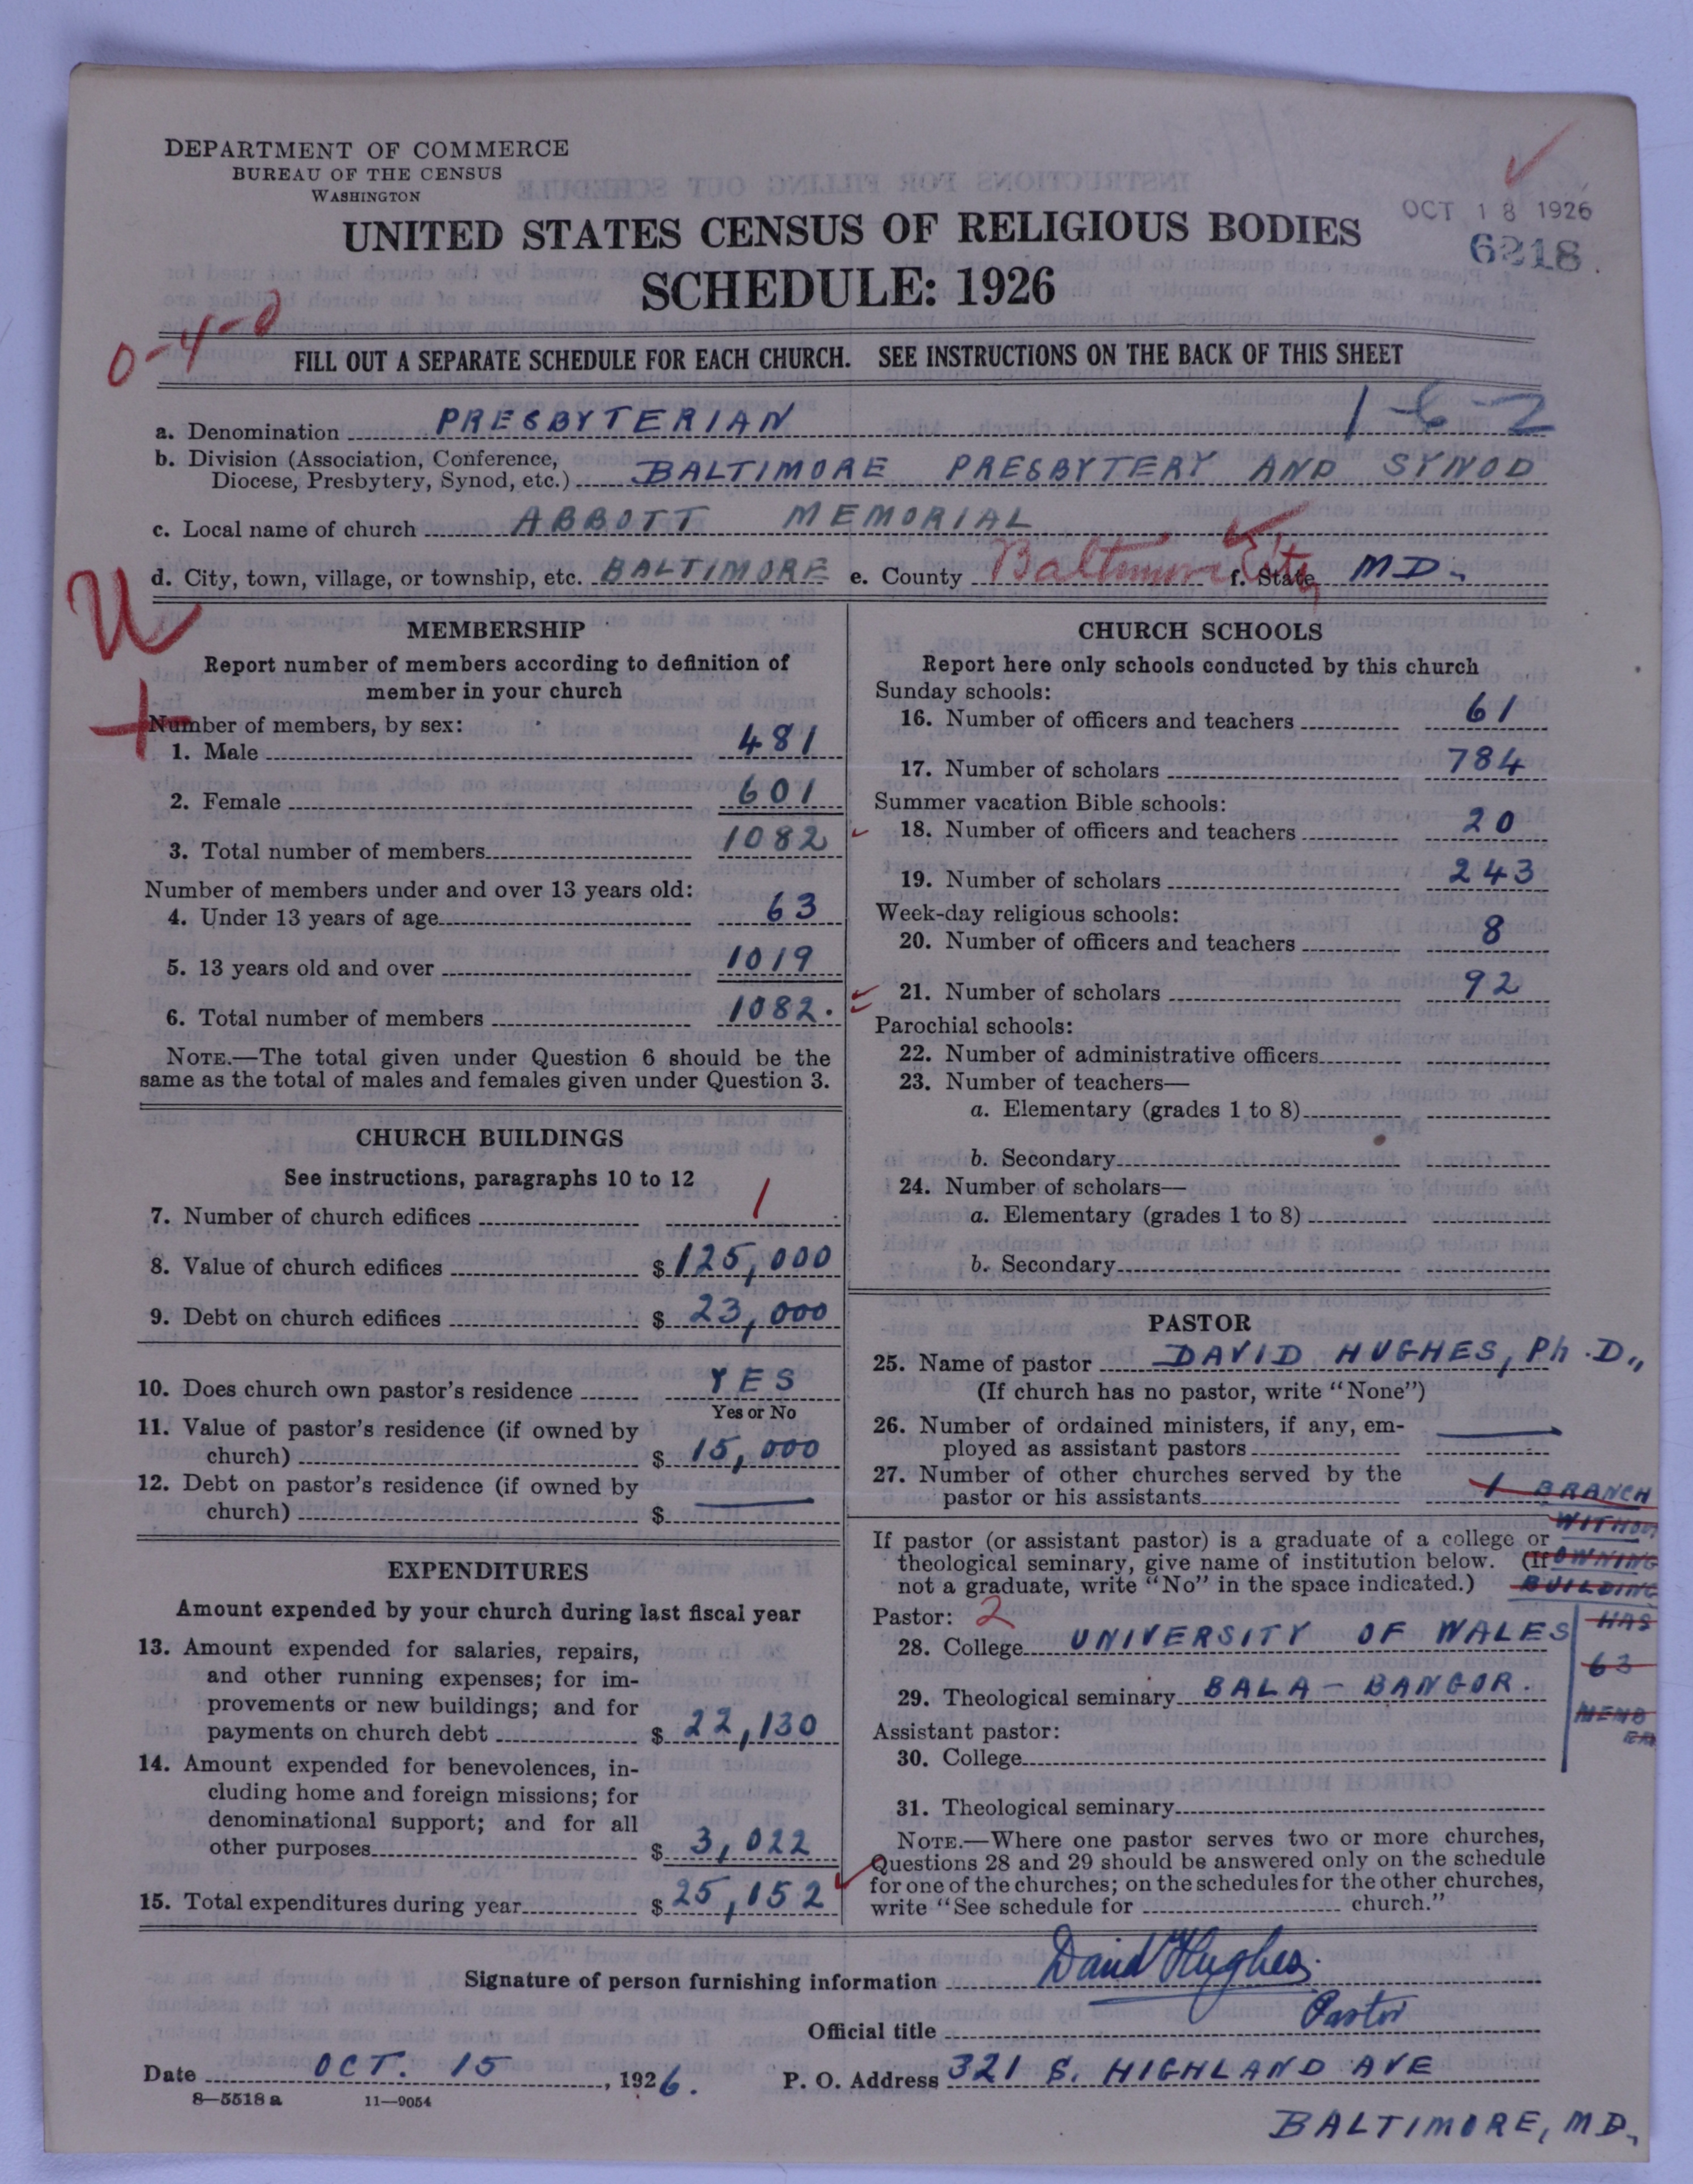 DEPARTMENT OF COMMERCE
BUREAU OF THE CENSUS
WASHINGTON
OCT 18 1926
6218.
UNITED STATES CENSUS OF RELIGIOUS BODIES
SCHEDULE: 1926
0-4-0
FILL OUT A SEPARATE SCHEDULE FOR EACH CHURCH. SEE INSTRUCTIONS ON THE BACK OF THIS SHEET
1-6-2
a. Denomination PRESBYTERIAN
b. Division (Association, Conference,
Diocese, Presbytery, Synod, etc.) BALTIMORE PRESBYTERY AND SYNOD
c. Local name of church ABBOTT MEMORIAL
d. City, town, village, or township, etc. BALTIMORE e. County Baltimore City f. State MD.
U
+
MEMBERSHIP
Report number of members according to definition of
member in your church
Number of members, by sex:
1. Male 481
2. Female 601
3. Total number of members 1082
Number of members under and over 13 years old:
4. Under 13 years of age 63
5. 13 years old and over 1019
6. Total number of members 1082.
NOTE.—The total given under Question 6 should be the
same as the total of males and females given under Question 3.
CHURCH BUILDINGS
See instructions, paragraphs 10 to 12
7. Number of church edifices 1
8. Value of church edifices $ 125,000
9. Debt on church edifices $ 23,000
10. Does church own pastor's residence YES
Yes or No
11. Value of pastor's residence (if owned by
church) $ 15,000
12. Debt on pastor's residence (if owned by
church) $ —
EXPENDITURES
Amount expended by your church during last fiscal year
13. Amount expended for salaries, repairs,
and other running expenses; for im-
provements or new buildings; and for
payments on church debt $ 22,130
14. Amount expended for benevolences, in-
cluding home and foreign missions; for
denominational support; and for all
other purposes $ 3,022
15. Total expenditures during year $ 25,152
CHURCH SCHOOLS
Report here only schools conducted by this church
Sunday schools:
16. Number of officers and teachers 61
17. Number of scholars 784
Summer vacation Bible schools:
18. Number of officers and teachers 20
19. Number of scholars 243
Week-day religious schools:
20. Number of officers and teachers 8
21. Number of scholars 92
Parochial schools:
22. Number of administrative officers
23. Number of teachers—
a. Elementary (grades 1 to 8)
b. Secondary
24. Number of scholars—
a. Elementary (grades 1 to 8)
b. Secondary
PASTOR
25. Name of pastor DAVID HUGHES, Ph.D.,
(If church has no pastor, write "None")
26. Number of ordained ministers, if any, em-
ployed as assistant pastors —
27. Number of other churches served by the
pastor or his assistants 1 BRANCH
WITHOUT
OWNING
BUILDING
HAS
63
MEMB
ER
If pastor (or assistant pastor) is a graduate of a college or
theological seminary, give name of institution below. (If
not a graduate, write "No" in the space indicated.)
Pastor: 2
28. College UNIVERSITY OF WALES
29. Theological seminary BALA - BANGOR.
Assistant pastor:
30. College
31. Theological seminary
NOTE.—Where one pastor serves two or more churches,
Questions 28 and 29 should be answered only on the schedule
for one of the churches; on the schedules for the other churches,
write "See schedule for church."
Signature of person furnishing information David Hughes.
Official title Pastor
Date OCT. 15, 1926. P. O. Address 321 S. HIGHLAND AVE
8—5518a 11—9054
BALTIMORE, MD.